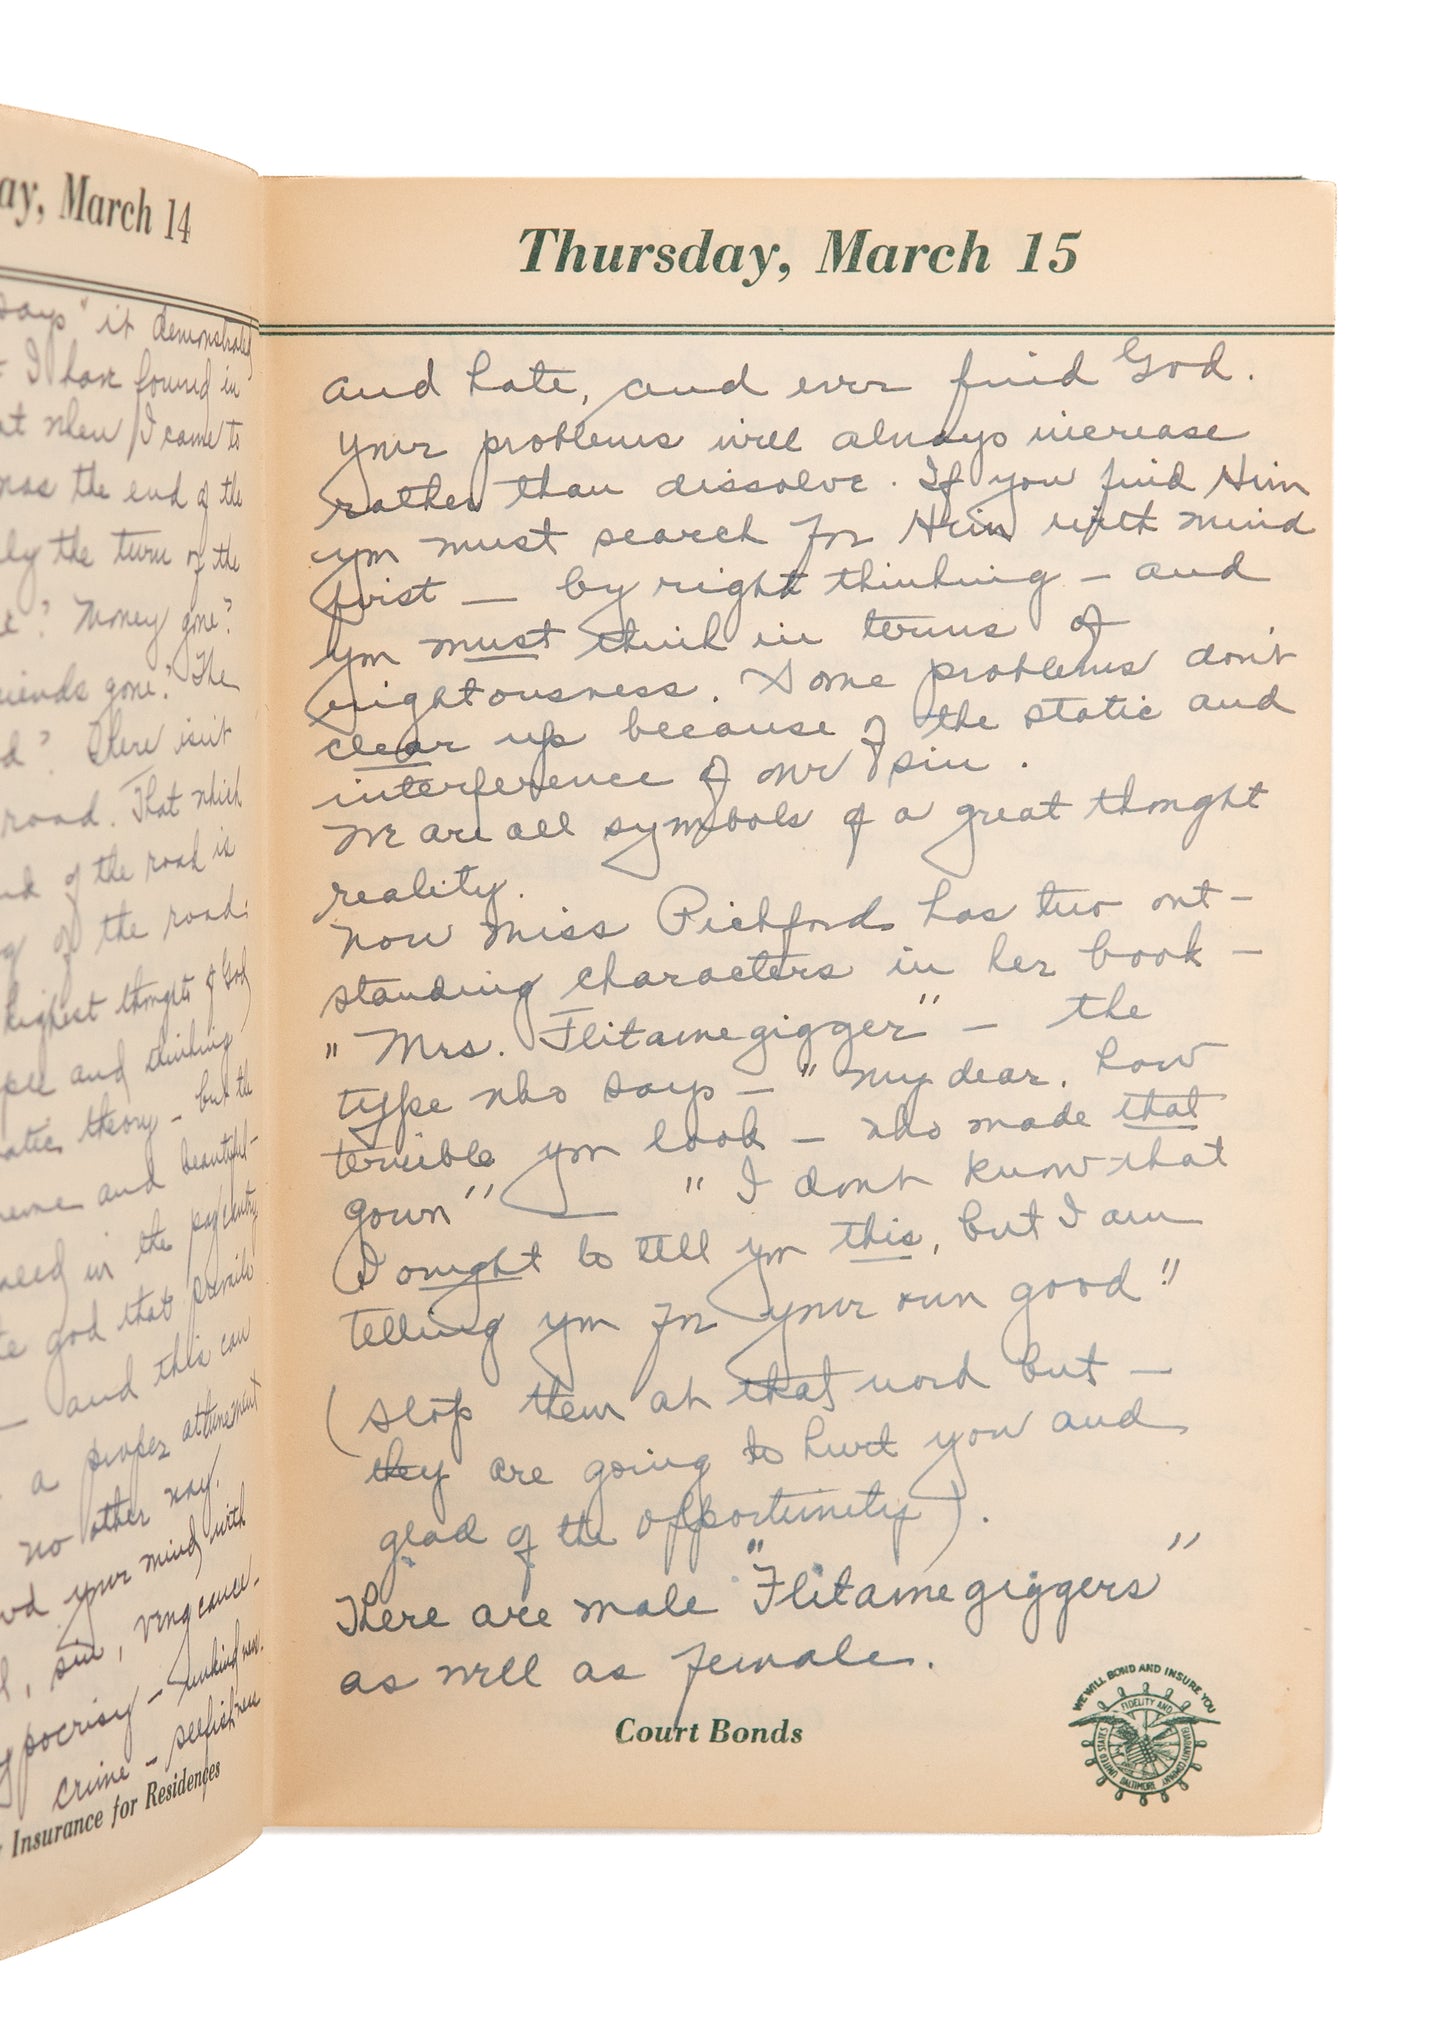 ay, March 14
says" it demonstrated
I have found in
at when I came to
was the end of the
ly the turn of the
e? Money gone?
riends gone? The
d? There isn't
road. That which
nd of the road is
g of the road.
highest thoughts of God
and thinking
theory - but the
and beautiful -
need in the
e god that prevails
- and this can
a proper attunement
no other way.
your mind with
, sin, vengeance -
ypocrisy -
crime - selfishness
Insurance for Residences
Thursday, March 15
and hate, and ever find God.
Your problems will always increase
rather than dissolve. If you find Him
you must search for Him with mind
first — by right thinking — and
you must think in terms of
rightousness. Some problems don't
clear up because of the static and
interference of our sin.
We are all symbols of a great thought
reality.
Now Miss Pickford has two out-
standing characters in her book —
"Mrs. Flitamegigger" — the
type who says — "my dear, how
terrible you look — who made that
gown" "I don't know that
I ought to tell you this, but I am
telling you for your own good"
(stop them at that word but —
they are going to hurt you and
glad of the opportunity).
There are male "Flitamegiggers"
as well as female.
Court Bonds
WE WILL BOND AND INSURE YOU
UNITED STATES FIDELITY AND GUARANTY COMPANY
BALTIMORE